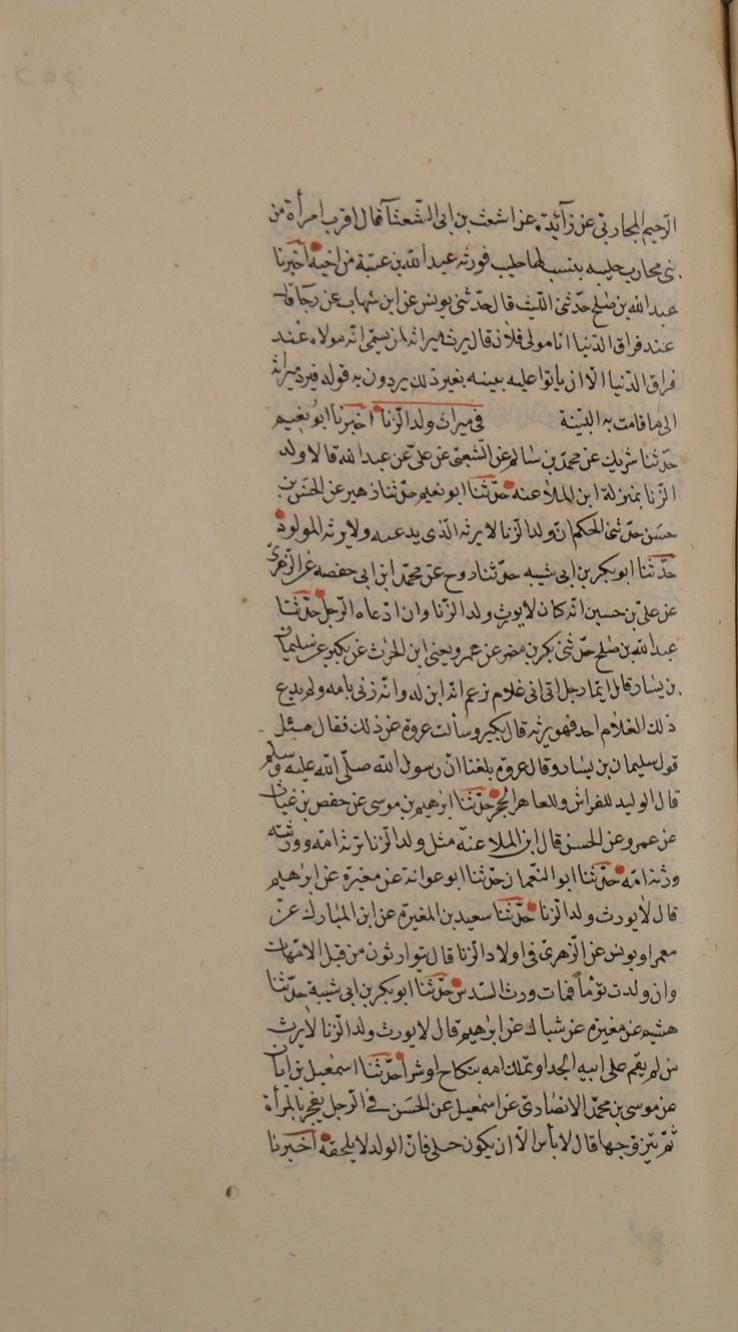 الرحيم المحاربي عن زائدة عن اشعث بن ابى الشعثا قال اقرب امرأة من
بنى محارب جليبه بنسب لها جليب فورثه عبد الله بن عتبة من اخيه اخبرنا
عبد الله بن صلح حدثنى الليث قال حدثنى يونس عن ابن شهاب عن رجل قال
عند فراق الدنيا انا مولى فلان قال يرث ميراثه لمن يسمى انه مولاه عند
فراق الدنيا الا ان ياتوا عليه ببينه بغير ذلك يردون به قوله فيرد ميراثه
الى ما قامت به البينة فى ميراث ولد الزنا اخبرنا ابو نعيم
حدثنا شريك عن محمد بن سالم عن الشعبى عن على عن عبد الله قالا ولد
الزنا بمنزلة ابن الملاعنه حدثنا ابو نعيم حدثنا زهير عن الحسن بن
حسن حدثنى الحكم ان ولد الزنا لا يرثه الذى يدعيه ولا يرثه المولود
حدثنا ابو بكر بن ابى شيبه حدثنا روح عن محمد ابن ابى حفصه عن الزهرى
عن على بن حسين انه كان لا يورث ولد الزنا وان ادعاه الرجل حدثنا
عبد الله بن صلح حدثنى بكر بن مضر عن عمرو يعنى ابن الحرث عن بكير عن سليمان
بن يسار قال ايما رجل اتى الى غلام يزعم انه ابن له وانه زنى بامه ولم يدع
ذلك الغلام احد فهو يرثه قال بكير وسألت عروة عن ذلك فقال مثل
قول سليمان بن يسار وقال عروة بلغنا ان رسول الله صلى الله عليه وسلم
قال الوليد للفراش وللعاهر الحجر حدثنا ابرهيم بن موسى عن حفص بن غياث
عن عمرو عن الحسن قال ابن الملاعنه مثل ولد الزنا ترثه امه وورثته
ورثة امه حدثنا ابو النعمان حدثنا ابو عوانة عن مغيرة عن ابرهيم
قال لا يورث ولد الزنا حدثنا سعيد بن المغيرة عن ابن المبارك عن
معمر او يونس عن الزهرى فى اولاد الزنا قال يتوارثون من قبل الامهات
وان ولدت توما فمات ورث السدس حدثنا ابو بكر بن ابى شيبة حدثنا
هشيم عن مغيرة عن شباك عن ابرهيم قال لا يورث ولد الزنا لا يرث
من لم يقم على ابيه الحد او تملك امه بنكاح او شرا حدثنا اسمعيل بن ابان
عن موسى بن محمد الانصارى عن اسمعيل عن الحسن فى الرجل يفجر بالمرأة
ثم يتزوجها قال لا بأس الا ان يكون حبلى فان الولد لا يلحقه اخبرنا